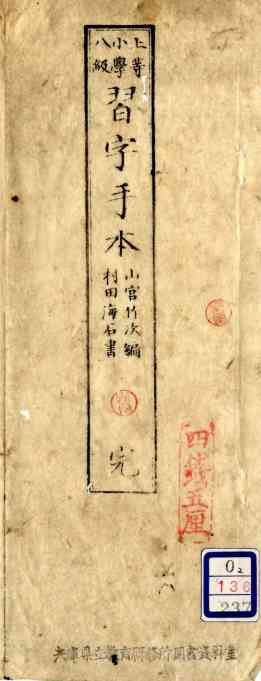 上等
小學
八級
習字手本
山宮竹次編
村田海石書
完
四錢五厘
O2
136
237
兵庫県立教育研修所図書資料室